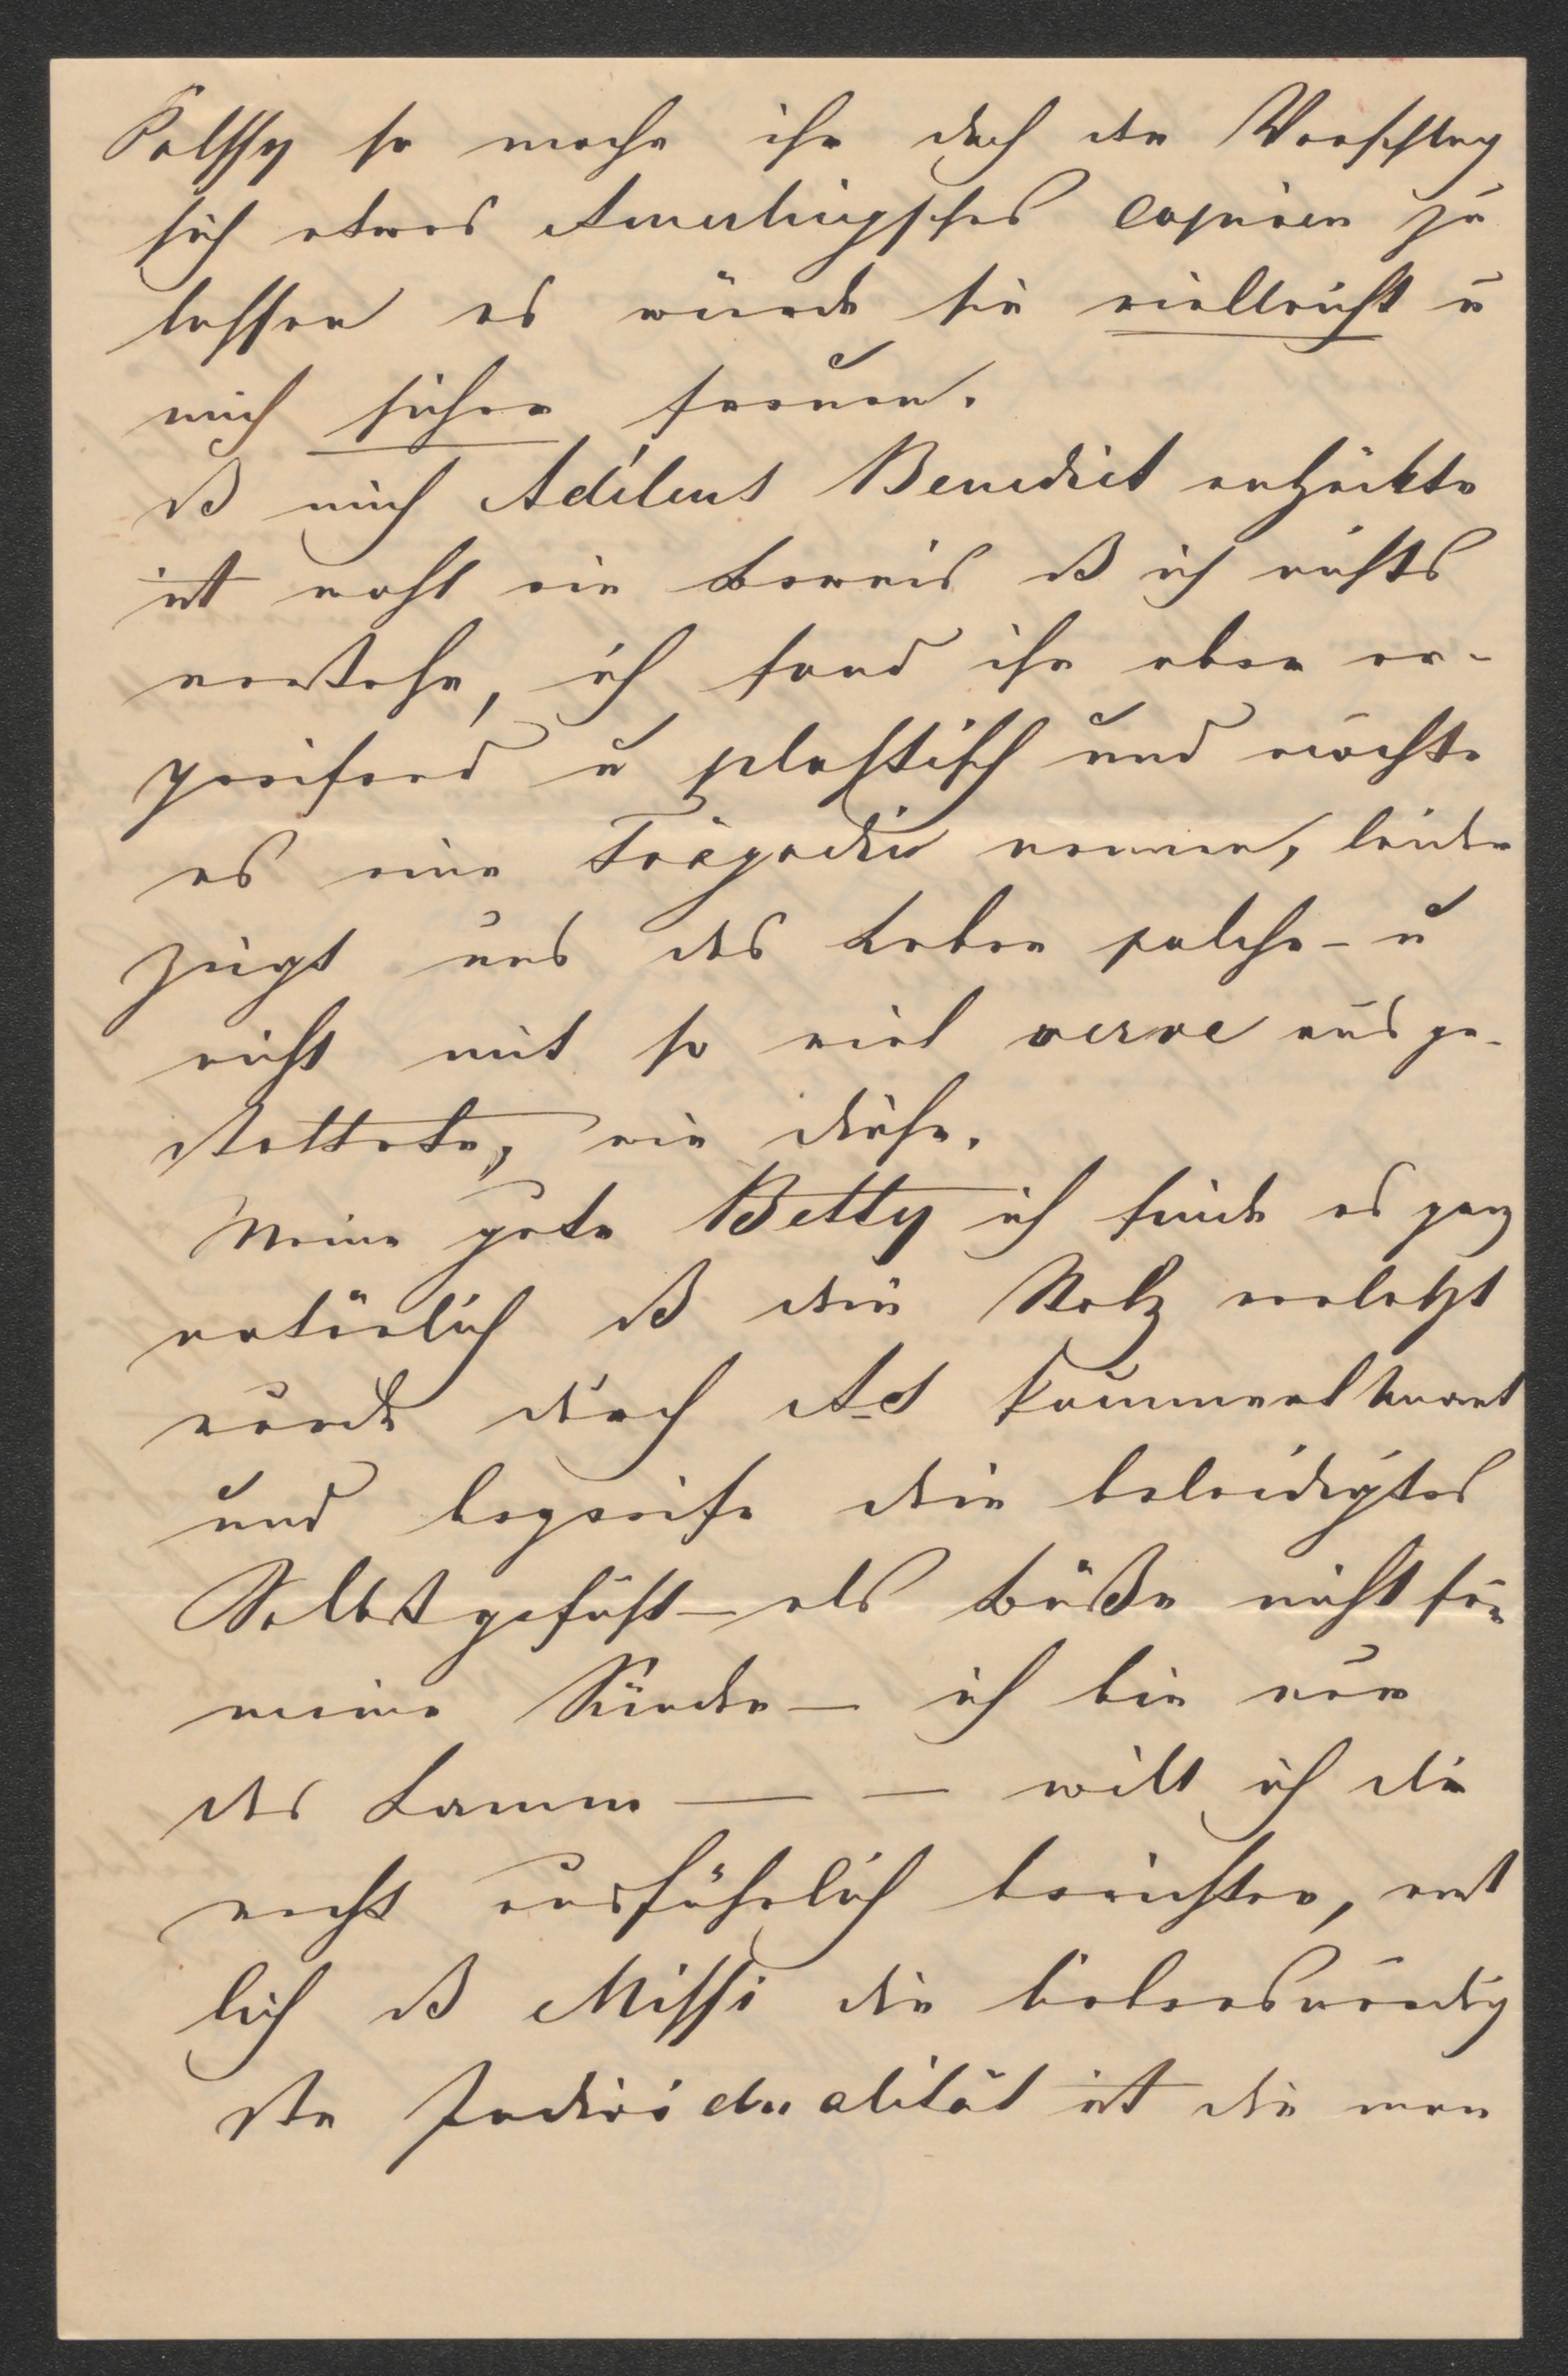 Palffy so mache ihr doch den Vorschlag
sich etwas Amerlingsches copieren zu
lassen es würde sie vielleicht u
mich sicher freuen.
ß mich Adèlens Benedict entzückte
ist wohl ein Beweis ß ich nichts
verstehe, ich fand ihn aber er-
greifend u plastisch und möchte
es eine Tragödie nennen, leider
zeigt uns das Leben solche - u
nicht mit so viel verve ausge-
stattete, wie diese.
Meine gute Betty ich finde es ganz
natürlich ß dein Stolz verletzt
wurde durch Ad
und begreife dein beleidigtes
Selbstgefühl - als Buße nicht für
meine Sünden - ich bin nur
das Lamm — — will ich dir
recht ausführlich berichten, end
lich ß Missi die liebenswürdig
ste Individualität ist die man